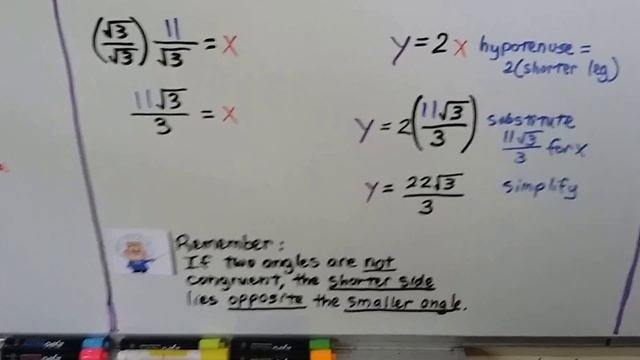 (√3/√3) 11/√3 = x
11√3/3 = x
y = 2x hypotenuse =
2(shorter leg)
y = 2(11√3/3) substitute
11√3/3 for x
y = 22√3/3 simplify
Remember:
If two angles are not
congruent, the shorter side
lies opposite the smaller angle.